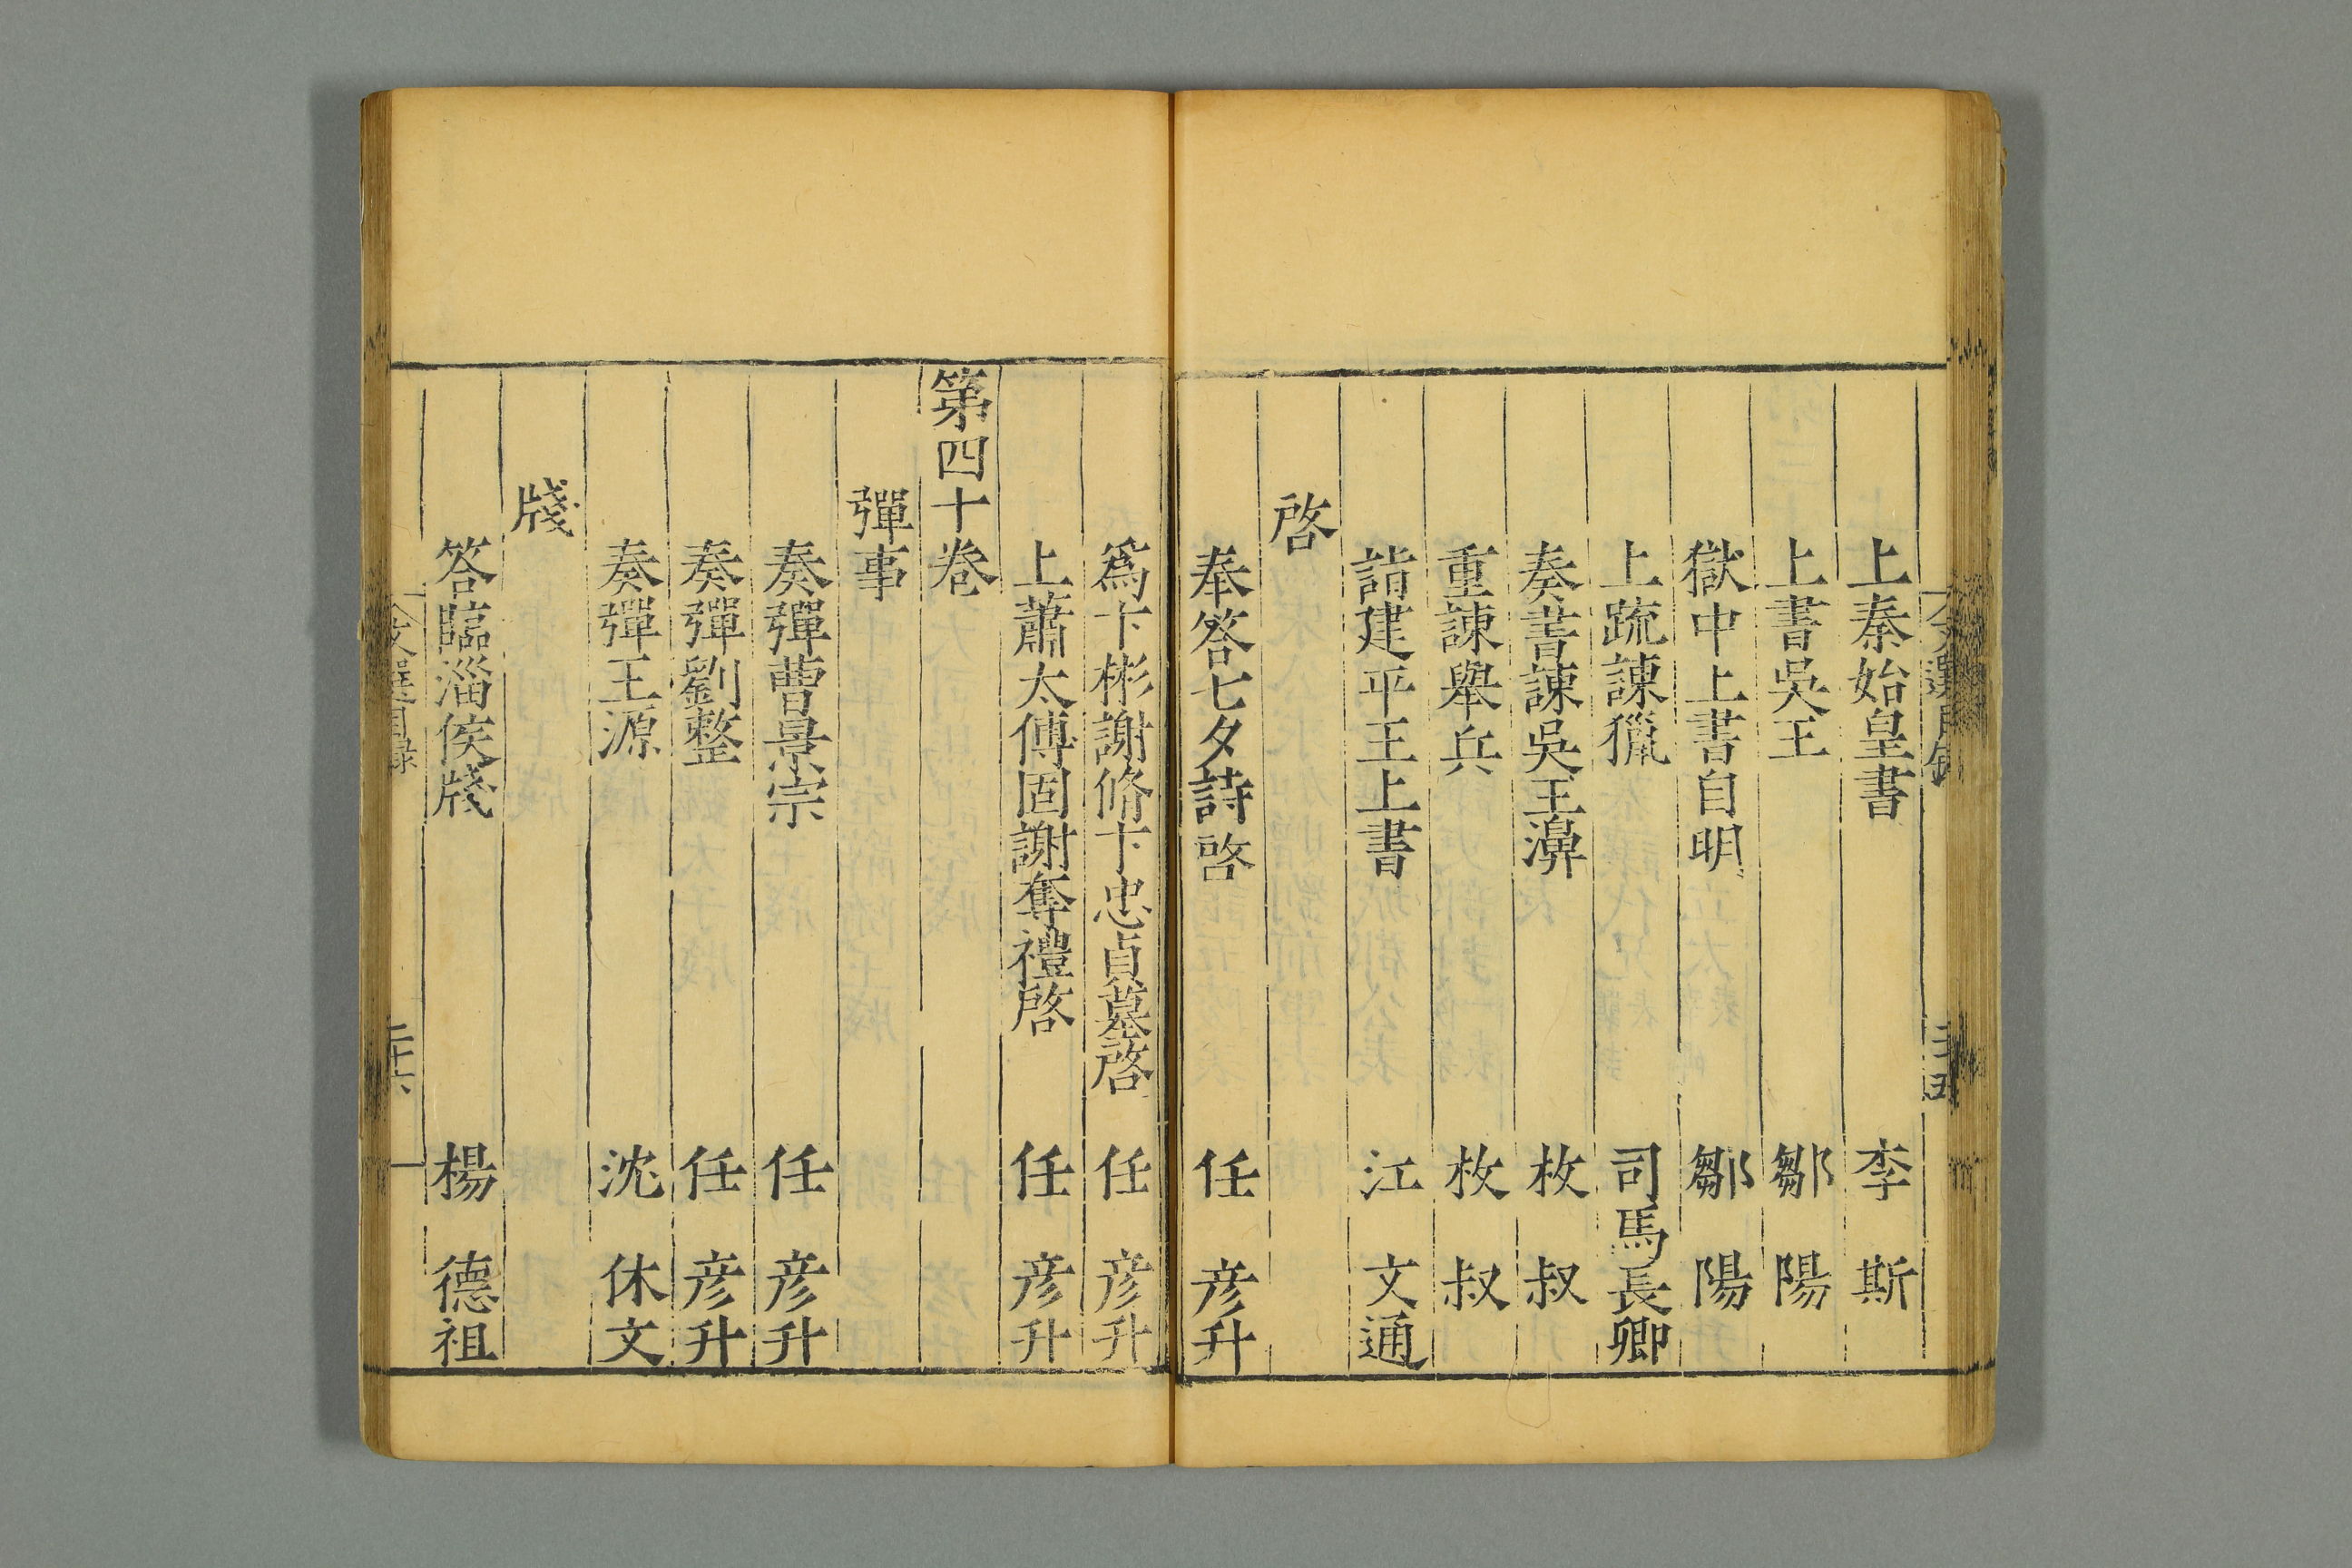 上秦始皇書 李斯
上書吳王 鄒陽
獄中上書自明 鄒陽
上疏諫獵 司馬長卿
奏書諫吳王濞 枚叔
重諫舉兵 枚叔
詣建平王上書 江文通
啓
奉答七夕詩啓 任彥升
爲卞彬謝脩卞忠貞墓啓 任彥升
上蕭太傅固謝奪禮啓 任彥升
第四十卷
彈事
奏彈曹景宗 任彥升
奏彈劉整 任彥升
奏彈王源 沈休文
牋
答臨淄侯牋 楊德祖
文選目錄 二十六